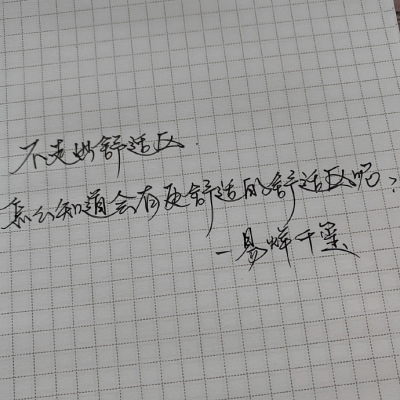 不走出舒适区.
怎么知道会有更舒适的舒适区呢?
—易烊千玺